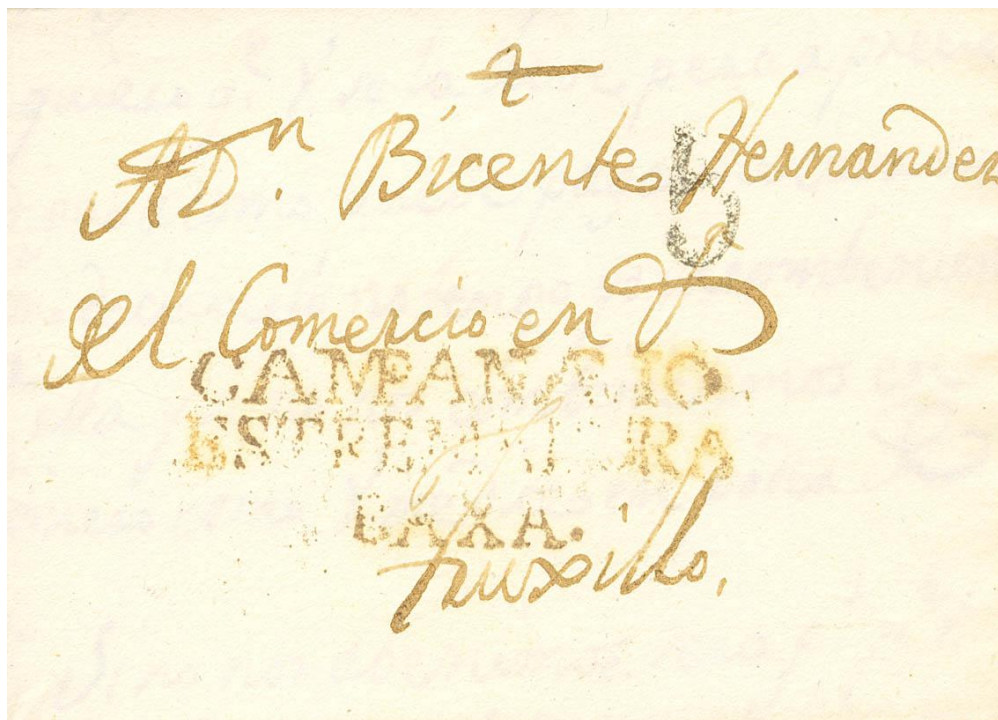 A Dn. Bicente Hernandez
5
del Comercio en
CAMPANARIO.
ESTREMADURA
BAXA.
Truxillo,